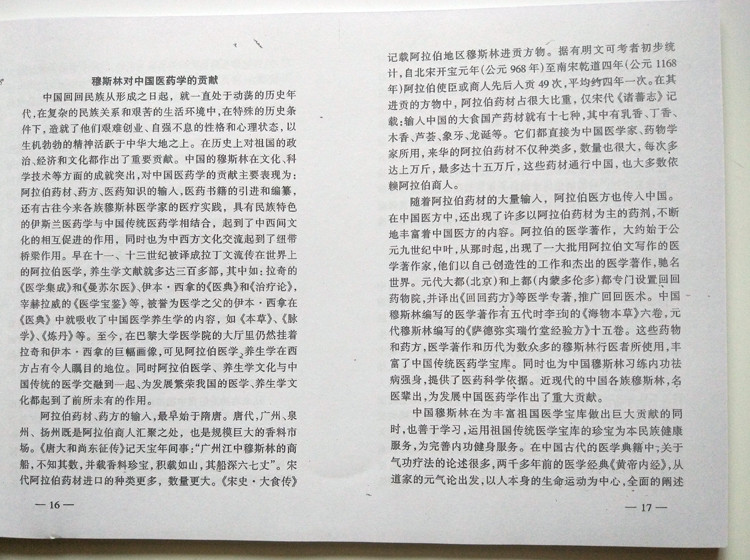 穆斯林对中国医药学的贡献
中国回回民族从形成之日起，就一直处于动荡的历史年
代，在复杂的民族关系和艰苦的生活环境中，在特殊的历史条
件下，造就了他们艰难创业、自强不息的性格和心理状态，以
生机勃勃的精神活跃于中华大地之上。在历史上对祖国的政
治、经济和文化都作出了重要贡献。中国的穆斯林在文化、科
学技术等方面的成就突出，对中国医药学的贡献主要表现为：
阿拉伯药材、药方、医药知识的输人，医药书籍的引进和编纂，
还有古往今来各族穆斯林医学家的医疗实践，具有民族特色
的伊斯兰医药学与中国传统医药学相结合，起到了中西间文
化的相互促进的作用，同时也为中西方文化交流起到了纽带
桥梁作用。早在十一、十三世纪被译成拉丁文流传在世界上
的阿拉伯医学，养生学文献就多达三百多部，其中如：拉奇的
《医学集成》和《曼苏尔医》、伊本·西拿的《医典》和《治疗论》，
宰赫拉威的《医学宝鉴》等，被誉为医学之父的伊本·西拿在
《医典》中就吸收了中国医学养生学的内容，如《本草》、《脉
学》、《炼丹》等。至今，在巴黎大学医学院的大厅里仍然挂着
拉奇和伊本·西拿的巨幅画像，可见阿拉伯医学、养生学在西
方占有令人瞩目的地位。同时阿拉伯医学、养生学文化与中
国传统的医学交融到一起、为发展繁荣我国的医学、养生学文
化都起到了前所未有的作用。
阿拉伯药材、药方的输人，最早始于隋唐。唐代，广州、泉
州、扬州既是阿拉伯商人汇聚之处，也是规模巨大的香料市
场。《唐大和尚东征传》记天宝年间事：“广州江中穆斯林的商
船，不知其数，并载香料珍宝，积载如山，其船深六七丈”。宋
代阿拉伯药材进口的种类更多，数量更大。《宋史·大食传》
— 16 —
记载阿拉伯地区穆斯林进贡方物。据有明文可考者初步统
计，自北宋开宝元年（公元968年）至南宋乾道四年（公元1168
年）阿拉伯使臣或商人先后人贡49次，平均约四年一次。在其
进贡的方物中，阿拉伯药材占很大比重，仅宋代《诸蕃志》记
载：输人中国的大食国产药材就有十七种，其中有乳香、丁香、
木香、芦荟、象牙、龙诞等。它们都直接为中国医学家、药物学
家所用，来华的阿拉伯药材不仅种类多，数量也很大，每次多
达上万斤，最多达十五万斤，这些药材通行中国，也大多数依
赖阿拉伯商人。
随着阿拉伯药材的大量输人，阿拉伯医方也传人中国。
在中国医方中，还出现了许多以阿拉伯药材为主的药剂，不断
地丰富着中国医方的内容。阿拉伯的医学著作，大约始于公
元九世纪中叶，从那时起，出现了一大批用阿拉伯文写作的医
学著作家，他们以自己创造性的工作和杰出的医学著作，驰名
世界。元代大都（北京）和上都（内蒙多伦多）都专门设置回回
药物院，并译出《回回药方》等医学专著，推广回回医术。中国
穆斯林编写的医学著作有五代时李珣的《海物本草》六卷，元
代穆斯林编写的《萨德弥实瑞竹堂经验方》十五卷。这些药物
和药方，医学著作和历代为数众多的穆斯林行医者所使用，丰
富了中国传统医药学宝库。同时也为中国穆斯林习练内功祛
病强身，提供了医药科学依据。近现代的中国各族穆斯林，名
医辈出，为发展中国医药学作出了重大贡献。
中国穆斯林在为丰富祖国医学宝库做出巨大贡献的同
时，也善于学习，运用祖国传统医学宝库的珍宝为本民族健康
服务，为完善内功健身服务。在中国古代的医学典籍中，关于
气功疗法的论述很多，两千多年前的医学经典《黄帝内经》，从
道家的元气论出发，以人本身的生命运动为中心，全面的阐述
— 17 —